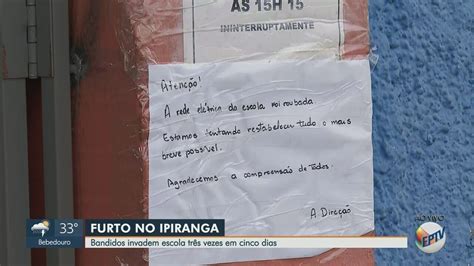 ÀS 15H 15
ININTERRUPTAMENTE
Atenção!
A rede elétrica da escola foi roubada
Estamos tentando restabelecer tudo o mais
breve possível.
Agradecemos a compreensão de todos.
A Direção
AO VIVO
EPTV
33°
Bebedouro
FURTO NO IPIRANGA
Bandidos invadem escola três vezes em cinco dias